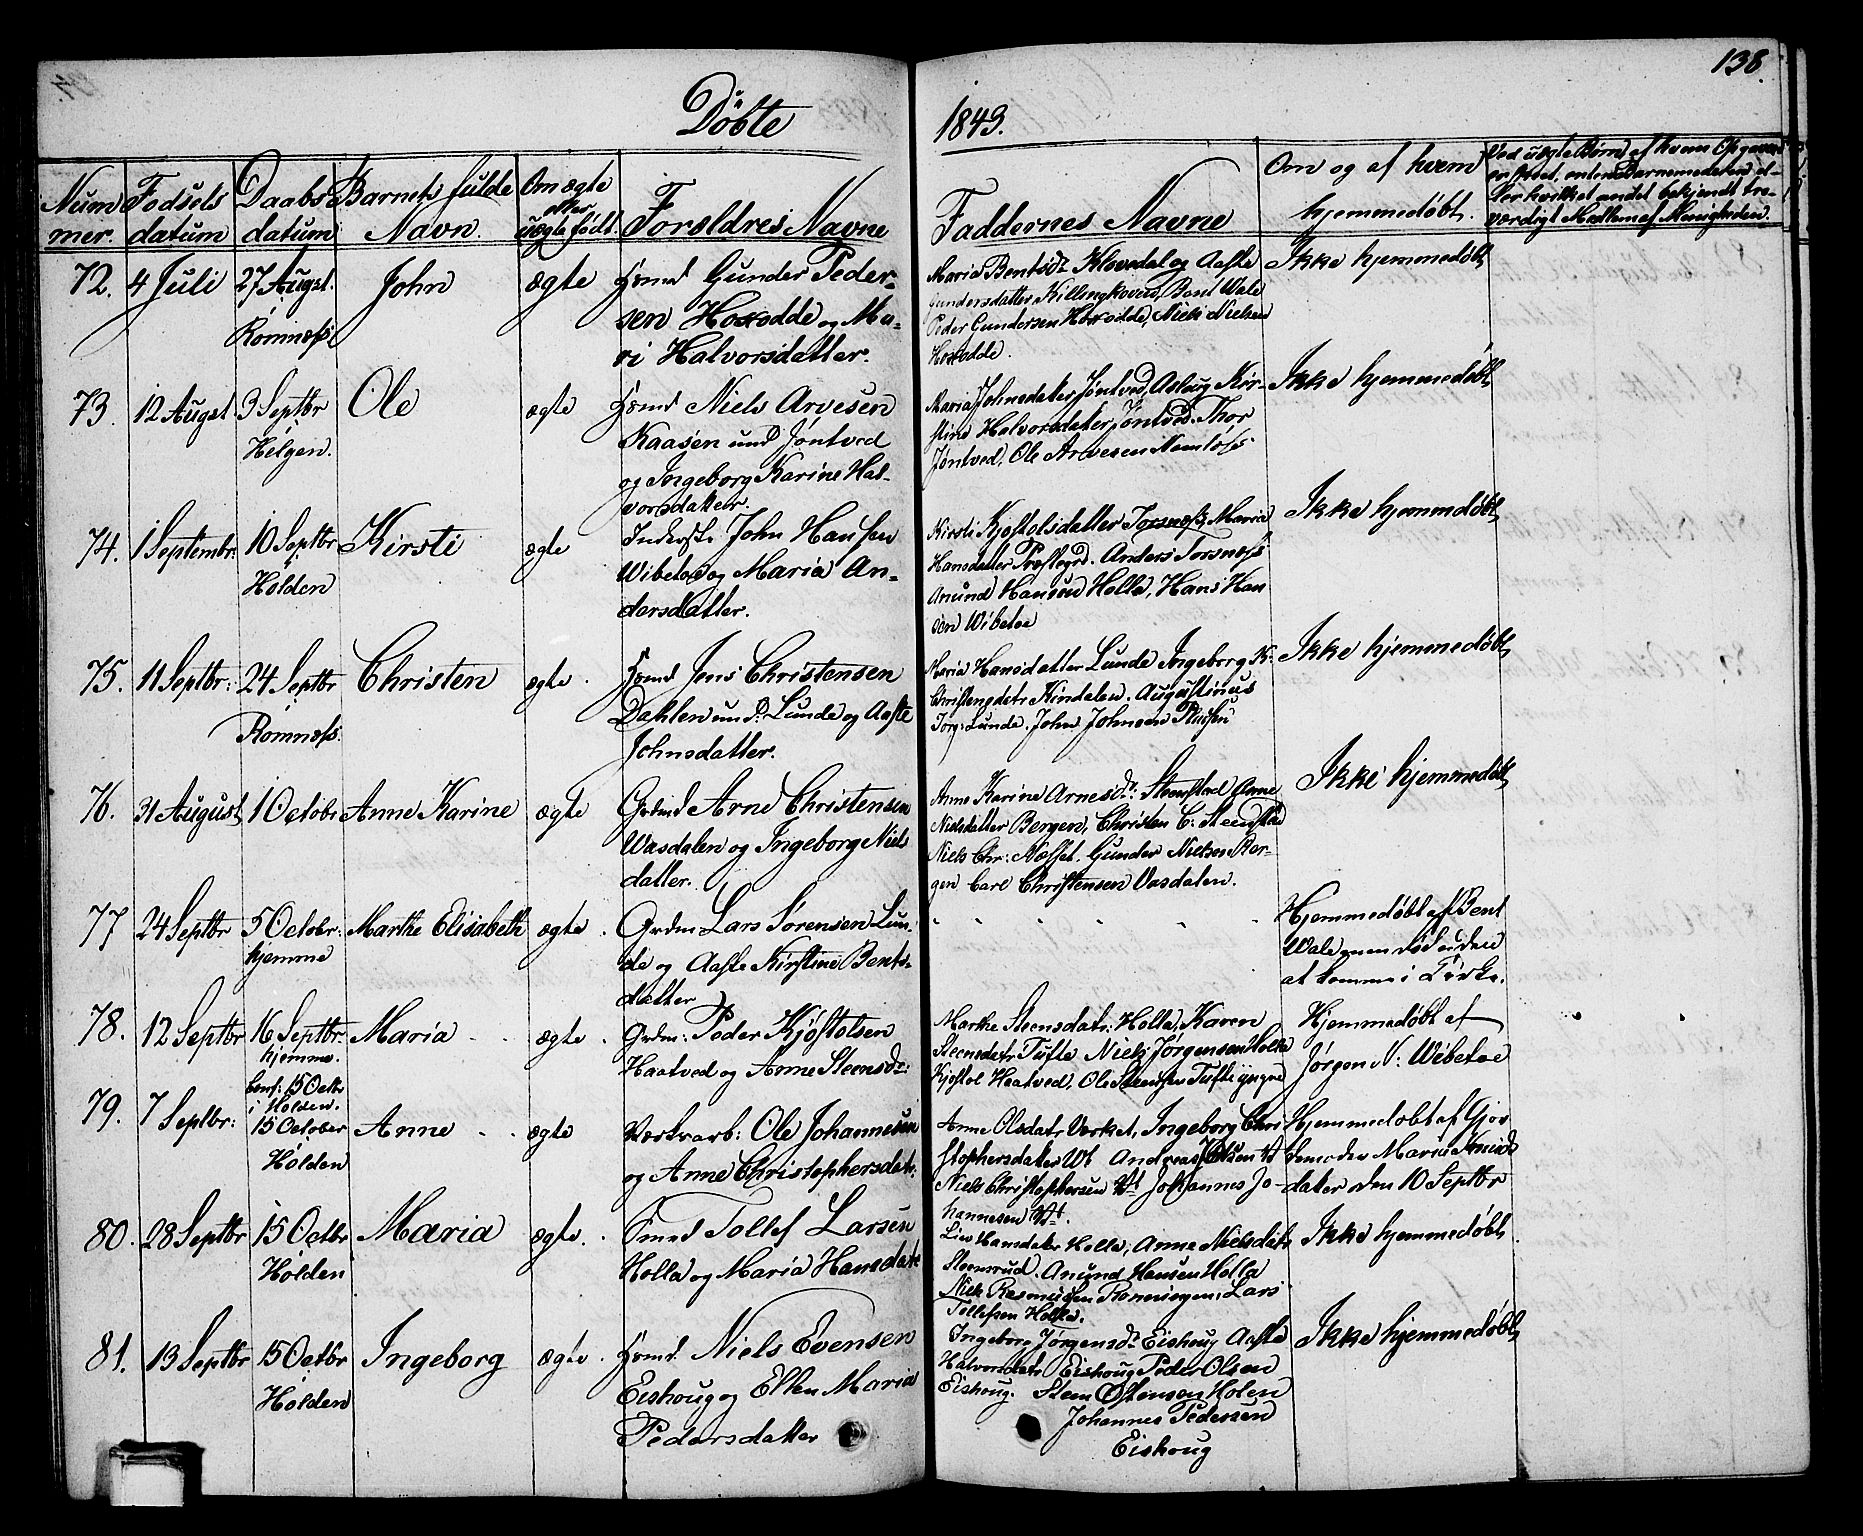 138.
Døbte 1843.
Num
mer.
Fødsels
datum
Daabs
datum
Barnets fulde
Navn.
Om ægte
eller
uægte født.
Forældres Navne
Faddernes Navne
Om og af hvem
hjemmedøbt.
72. 4 Juli
27 Augst.
Romnæss
John
ægte
Grmd Gunder Peder-
sen Hoxodde og Ma-
ri Halvorsdatter.
Maria Bentsdr Klovedal og Aaste
Gundersdatter Killingkoven, Bent Wale
Peder Gundersen Hoxodde, Niels Nielsen
Hoxodde.
Ikke hjemmedøbt
73. 12 Augst
3 Septbr
Helgen.
Ole
ægte
Niels Arvesen
Kaasen und Jøntved
og Ingeborg Karine Hal-
vorsdatter.
Maria Johnsdater Jøntved, Aslaug Kir-
stine Halvorsdater Jøntved. Thor
Jøntved, Ole Arvesen Namløs
Ikke hjemmedøbt
74. 1 Septembr.
10 Septbr
Holden
Kirsti
ægte
Inderst John Hansen
Wibetoe og Maria An-
dersdatter.
Kirsti Kjøstolsdatter Torsnæss, Maria
Hansdatter Præstegrd. Anders Torsnæss
Anund Hansen Holla, Hans Han
sen Wibetoe
Ikke hjemmedøbt
75. 11 Septbr:
24 Septbr
Romnæss.
Christen
ægte.
Jens Christensen
Dahlen und: Lunde og Aaste
Johnsdatter.
Maria Hansdatter Lunde Ingeborg K:
Christensdatr Kindalen. Augustinus
Jørg: Lunde. John Johnsen
Ikke hjemmedøbt
76. 31 August
1 Octobr
Anne Karine
ægte
Grdmd Arne Christensen
Wasdalen og Ingeborg Niels
datter.
Anne Karine Arnesdr: Steenstad Anne
Nielsdatter Bergen, Christen C: Steenstad
Niels Chr: Næsset. Gunder Nielsen Ber-
gen Carl Christensen Vasdalen.
Ikke hjemmedøbt
77 24 Septbr
5 Octobr:
hjemme
Marthe Elisabeth
ægte.
Grdm Lars Sørensen Lun-
de og Aaste Kirstine Bents-
datter
Hjemmedøbt af Bent
Wale men død uden
at komme i Kirke.
78. 12 Septbr
16 Septbr.
hjemme.
15 Octbr
i Holden.
Maria
ægte.
Grdm: Peder Kjøstolsen
Haatved og Anne Steensdr:
Marthe Steensdatr: Holla, Karen
Steensdatr Tufte Niels Jørgensen Holla
Kjøstol Haatved, Ole Steensen Tufte yngre
Hjemmedøbt af
Jørgen N: Wibetoe
79. 7 Septbr:
15 October
Holden
Anne
ægte
Værksarb: Ole Johannesen
og Anne Christophersdatr.
Anne Olsdatr Værket, Ingeborg Chri
stophersdater Wt Andreas Olsen Wt
Niels Christophersen Wt Johannes Jo-
hannesen Wt.
Hjemmedøbt af Gjor
demoder Maria Knuds
dater den 10 Septbr
80. 28 Septbr
15 Octbr
Holden
Maria
ægte.
Tollef Larsen
Holla og Maria Hansdatr
Liv Hansdater Holla, Anne Nielsdatr
Steenrud. Anund Hansen Holla
Niels Rasmussen Ronningen, Lars
Tollefsen Holla.
Ikke hjemmedøbt
81. 13 Septbr
15 Octbr
Holden
Ingeborg
ægte.
Grmd. Niels Evensen
Eishoug og Ellen Maria
Pedersdatter
Ingeborg Jørgensdr Eishoug Aaste
Halvorsdatr Eishoug Peder Olsen
Eishoug. Steen Østensen Holen
Johannes Pedersen
Eishoug
Ikke hjemmedøbt